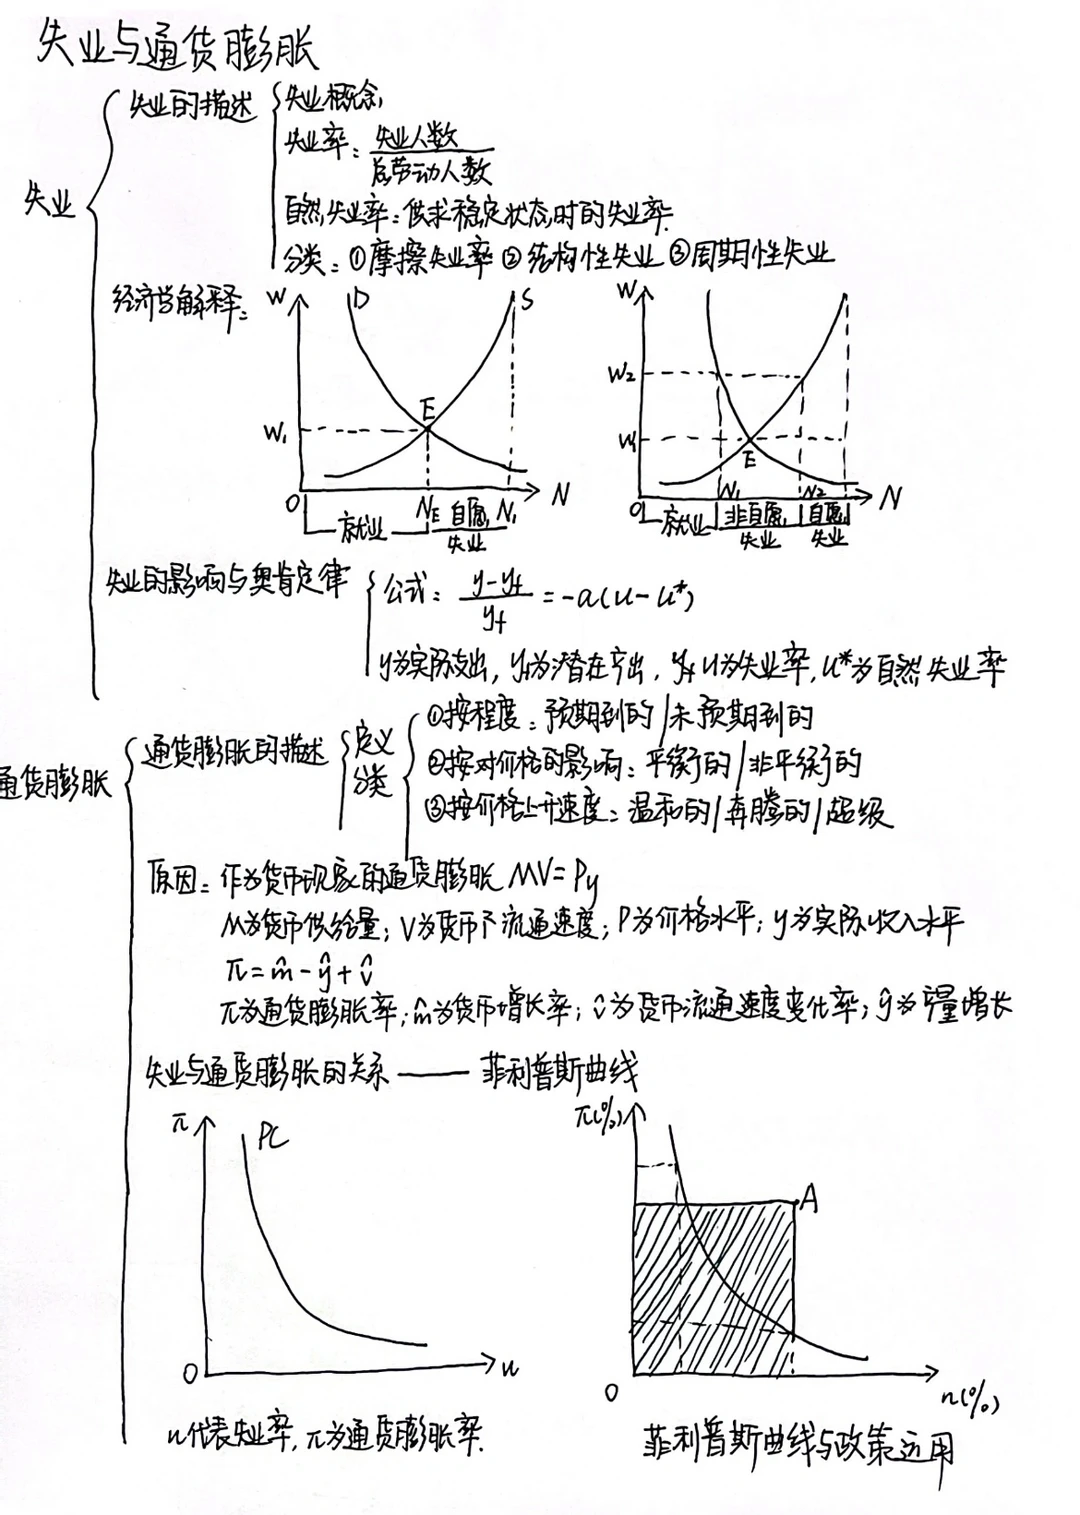 失业与通货膨胀
失业
失业的描述
失业概念
失业率：失业人数/总劳动人数
自然失业率：供求稳定状态时的失业率
分类：①摩擦失业率 ②结构性失业 ③周期性失业
经济学解释：
W D S
E
W₁
O N_E N₁ N
就业 自愿失业
W
W₂
W₁
E
O N₁ N₂ N
就业 非自愿失业 自愿失业
失业的影响与奥肯定律
公式：(y-y_f)/y_f = -a(u-u*)
y为实际支出，y_f为潜在产出，u为失业率，u*为自然失业率
通货膨胀
通货膨胀的描述
定义
分类
①按程度：预期到的/未预期到的
②按对价格的影响：平衡的/非平衡的
③按价格上升速度：温和的/奔腾的/超级
原因：作为货币现象的通货膨胀 MV=Py
M为货币供给量；V为货币流通速度；P为价格水平；y为实际收入水平
π=m̂-ŷ+v̂
π为通货膨胀率；m̂为货币增长率；v̂为货币流通速度变化率；ŷ为产量增长
失业与通货膨胀的关系——菲利普斯曲线
π PC
O u
u代表失业率，π为通货膨胀率.
π(%)
A
O u(%)
菲利普斯曲线与政策运用